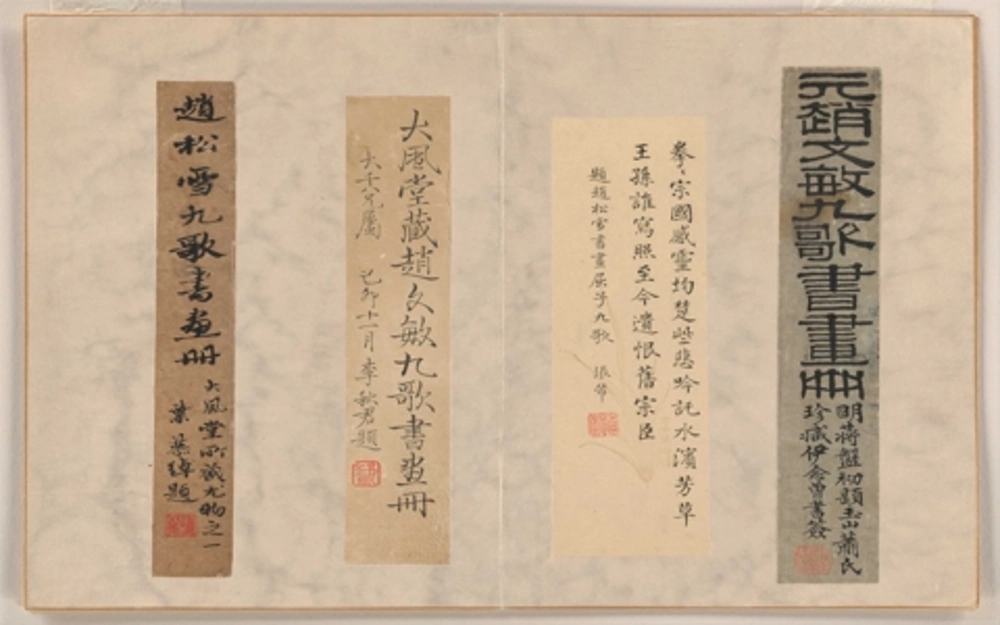 元趙文敏九歌書畫冊
明蔣盤初題玉山蕭氏
珍臧伊念曾書簽
拳〻宗國感靈均楚些悲吟託水濱芳草
王孫誰寫照至今遺恨舊宗臣
題趙松雪書畫屈子九歌
大風堂藏趙文敏九歌書画冊
大千兄屬 己卯十一月李秋君題
趙松雪九歌書画冊
大風堂所藏尤物之一
葉恭綽題